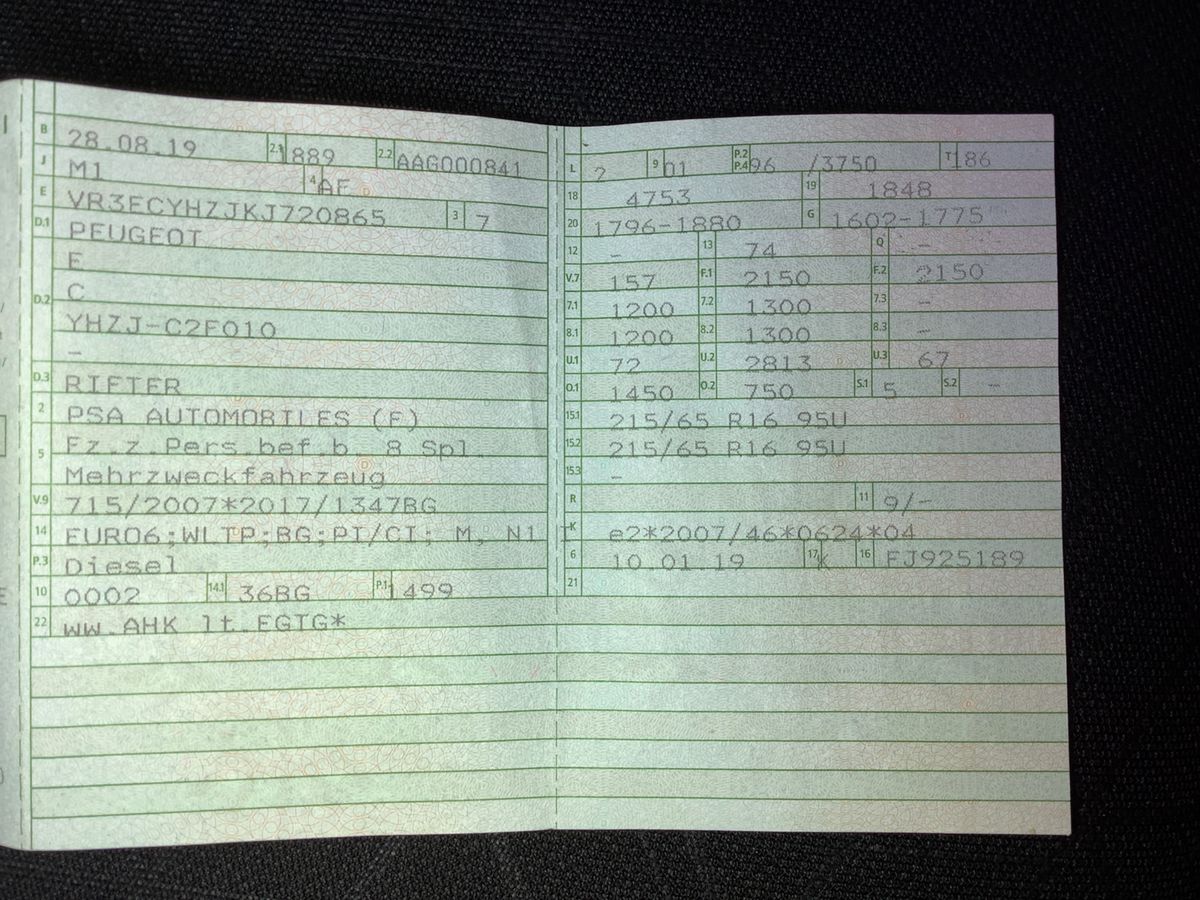 B 28.08.19 2.1 1889 2.2 AAG000841
J M1 4 AF
E VR3ECYHZJKJ720865 3 7
D.1 PEUGEOT
E
D.2 C
YHZJ-C2F010
-
D.3 RIFTER
2 PSA AUTOMOBILES (F)
5 Fz.z.Pers.bef.b. 8 Spl.
Mehrzweckfahrzeug
V.9 715/2007*2017/1347BG
14 EURO6;WLTP;BG;PI/CI; M, N1 I
P.3 Diesel
10 0002 14.1 36BG P.1 1499
22 ww.AHK lt.EGTG*
L 2 9 01 P.2 P.4 96 /3750 T 186
18 4753 19 1848
20 1796-1880 G 1602-1775
12 - 13 74 Q -
V.7 157 F.1 2150 F.2 2150
7.1 1200 7.2 1300 7.3 -
8.1 1200 8.2 1300 8.3 -
U.1 72 U.2 2813 U.3 67
O.1 1450 O.2 750 S.1 5 S.2 -
15.1 215/65 R16 95U
15.2 215/65 R16 95U
15.3 -
R 11 9/-
K e2*2007/46*0624*04
6 10.01.19 17 K 16 FJ925189
21